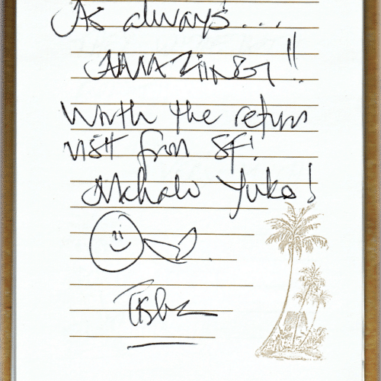 As always...
AMAZiiNG!!
Worth the return
visit from SF!
Mahalo Yuko!